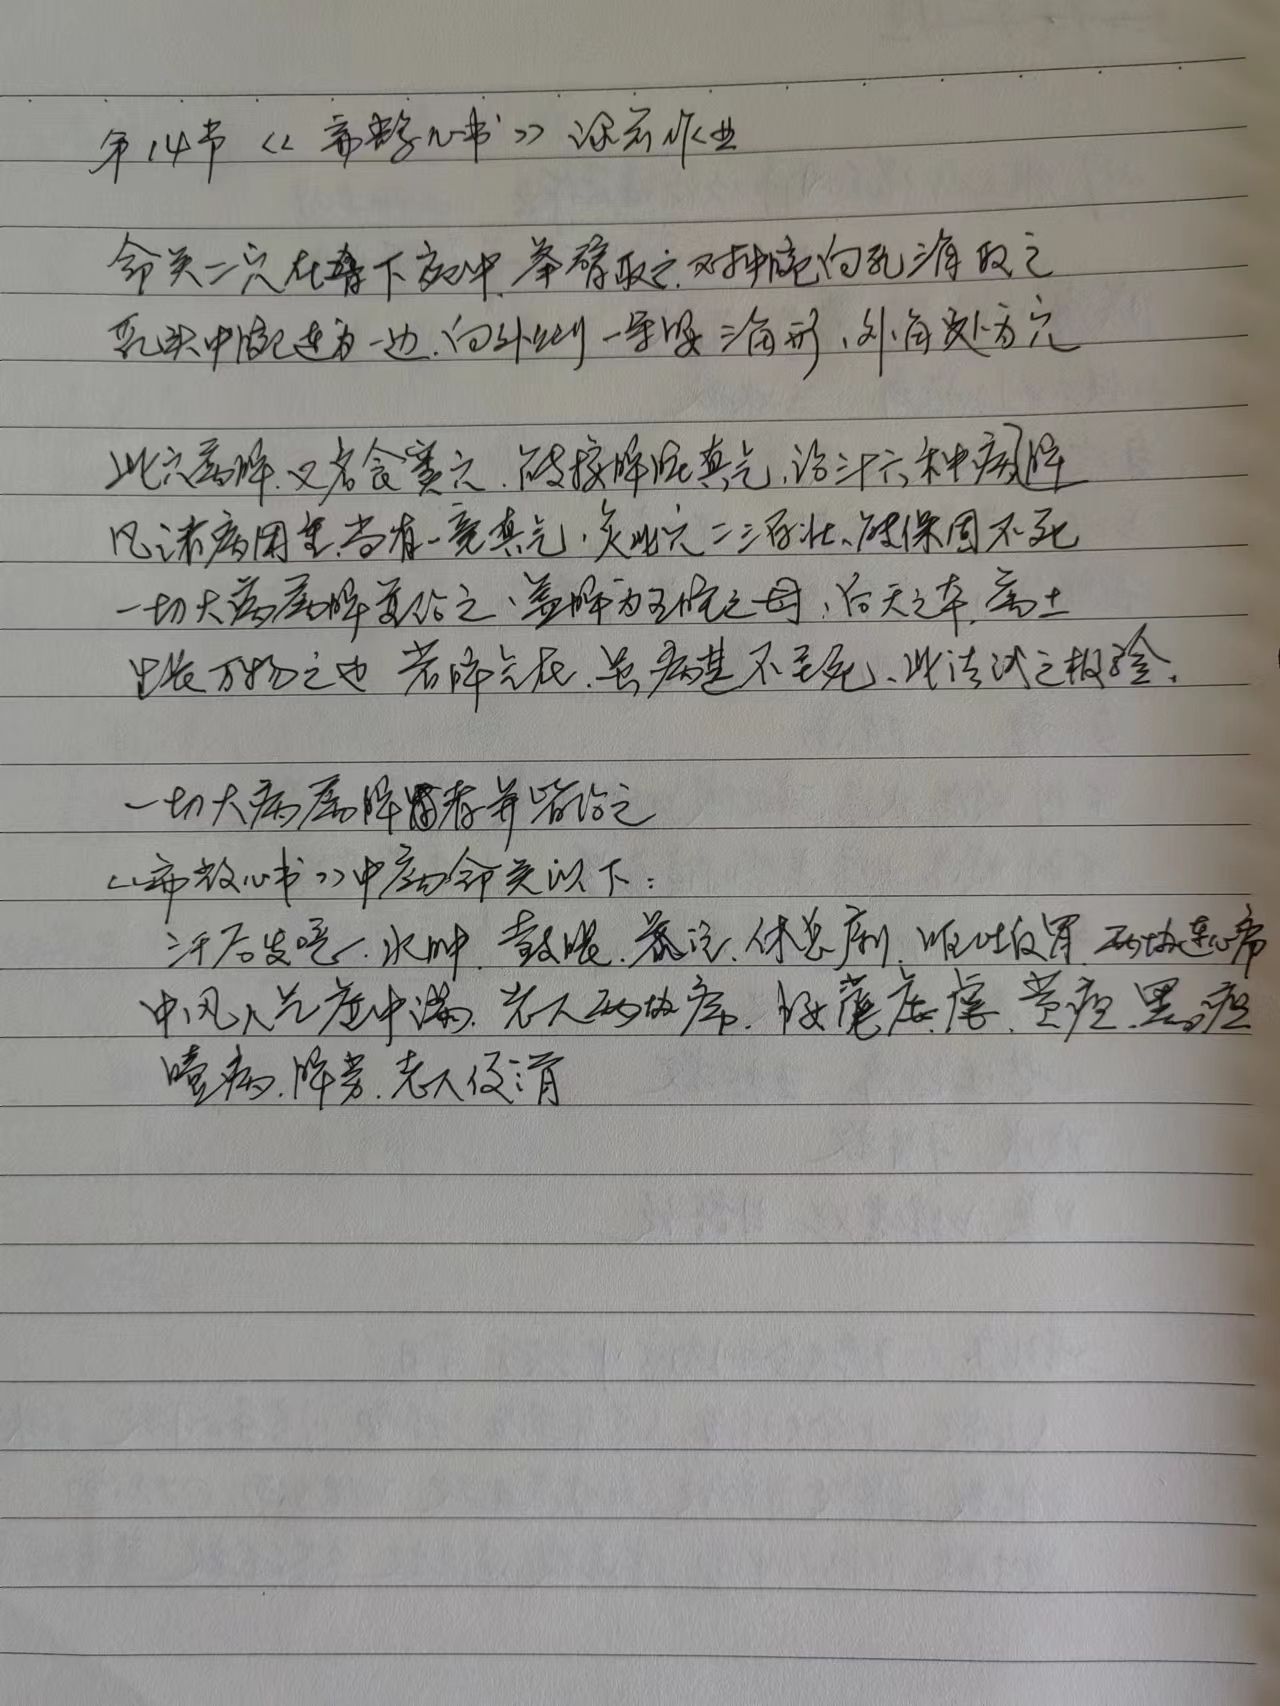 第14节 《扁鹊心书》 课后作业
命关二穴在胁下宛中, 举臂取之, 对中脘向乳三角取之
乳头中脘连为一边, 向外作一等腰三角形, 外角处为穴
此穴属脾, 又名食窦穴, 能接脾脏真气, 治三十六种病
凡诸病困重, 尚有一毫真气, 灸此穴二三百壮, 能保固不死
一切大病属脾者治之, 盖脾为五脏之母, 后天之本, 属土
生长万物之也 若脾气在, 虽病甚不至死, 此法试之极验.
一切大病属脾者并皆治之
《扁鹊心书》中应命关以下:
汗后发噫, 水肿, 鼓胀, 暴注, 休息痢, 呕吐反胃, 两胁连心痛
中风人气虚中满, 老人两胁痛, 痿 疟, 黄疸, 黑疸
噎病, 脾劳, 老人 滑